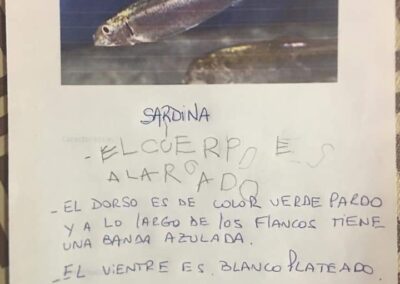 SARDINA
- EL CUERPO ES
ALARGADO
- EL DORSO ES DE COLOR VERDE PARDO
Y A LO LARGO DE LOS FLANCOS TIENE
UNA BANDA AZULADA.
- EL VIENTRE ES BLANCO PLATEADO.